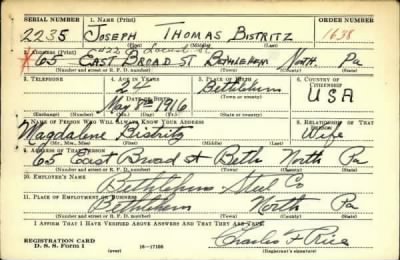 SERIAL NUMBER 1. NAME (Print) ORDER NUMBER
2235 JOSEPH THOMAS BISTRITZ 1638
(First) (Middle) (Last)
2. ADDRESS (Print)
65 EAST BROAD ST BETHLEHEM NORTH. Pa
(Number and street or R. F. D. number) (Town) (County) (State)
3. TELEPHONE 4. AGE IN YEARS 5. PLACE OF BIRTH 6. COUNTRY OF CITIZENSHIP
24 Bethlehem
DATE OF BIRTH (Town or county) USA
May 1916 Pa
(Exchange) (Number) (Mo.) (Day) (Yr.) (State or country)
7. NAME OF PERSON WHO WILL ALWAYS KNOW YOUR ADDRESS 8. RELATIONSHIP OF THAT PERSON
Magdalene Bistritz Wife
(Mr., Mrs., Miss) (First) (Middle) (Last)
9. ADDRESS OF THAT PERSON
65 East Broad St Beth North Pa
(Number and street or R. F. D. number) (Town) (County) (State)
10. EMPLOYER'S NAME
Bethlehem Steel Co
11. PLACE OF EMPLOYMENT OR BUSINESS
Bethlehem North Pa
(Number and street or R. F. D. number) (Town) (County) (State)
I AFFIRM THAT I HAVE VERIFIED ABOVE ANSWERS AND THAT THEY ARE TRUE.
Charles F Rice
REGISTRATION CARD
D. S. S. Form 1 (over) 16—17105 (Registrant's signature)